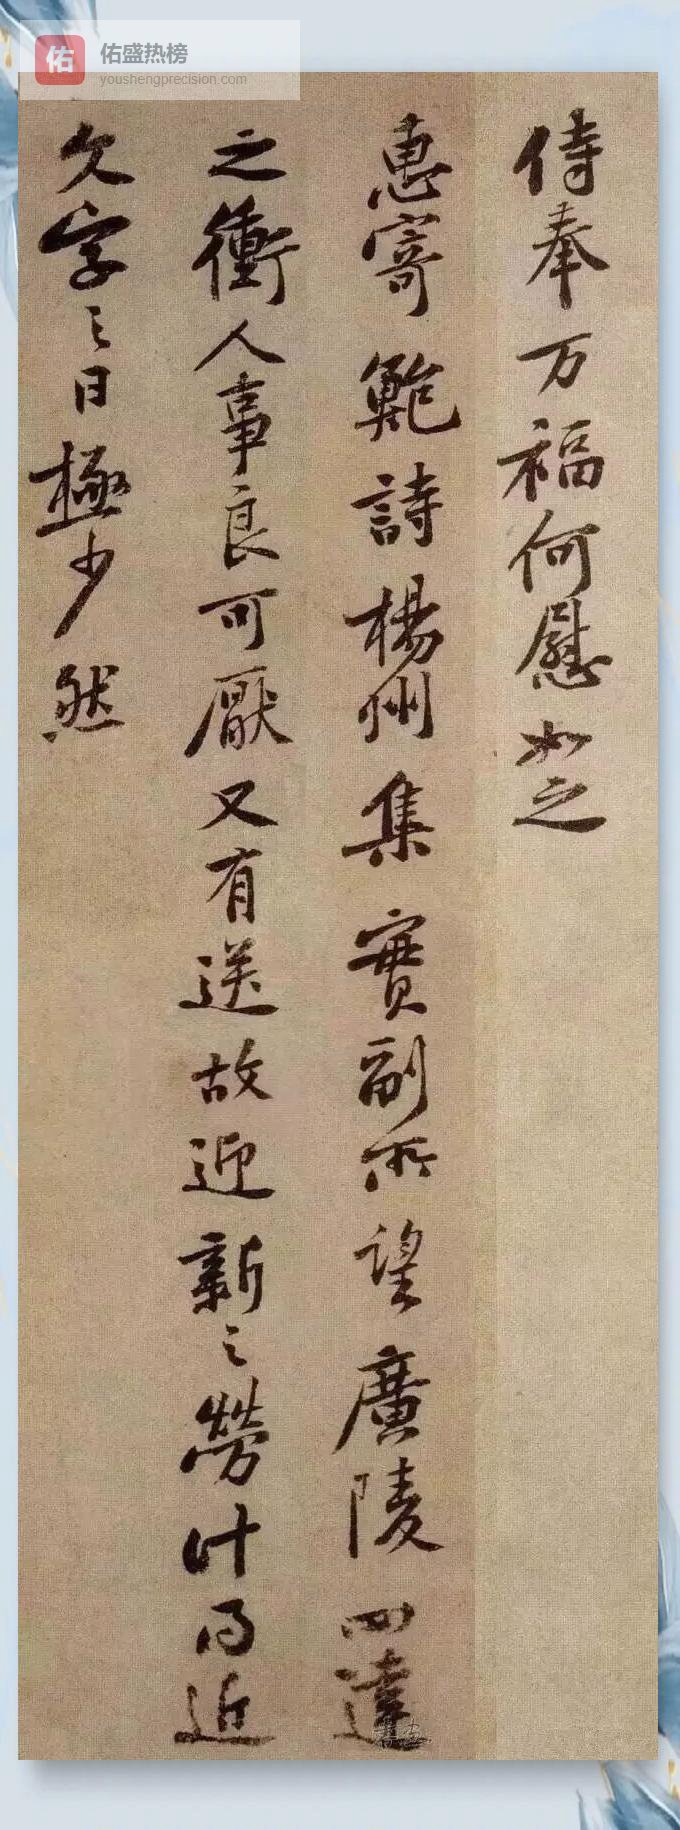 佑
佑盛热榜
youshengprecision.com
侍奉万福何慰如之
惠寄鲍詩楊州集實副所望廣陵四達
之衝人事良可厭又有送故迎新之勞計得近
文字之日極少然